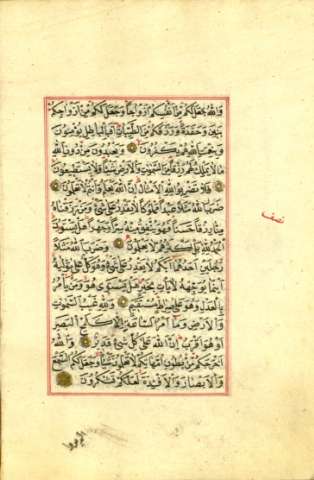 وَاللّٰهُ جَعَلَ لَكُمْ مِنْ اَنْفُسِكُمْ اَزْوَاجًا وَجَعَلَ لَكُمْ مِنْ اَزْوَاجِكُمْ
بَنٖينَ وَحَفَدَةً وَرَزَقَكُمْ مِنَ الطَّيِّبَاتِ اَفَبِالْبَاطِلِ يُؤْمِنُونَ
وَبِنِعْمَتِ اللّٰهِ هُمْ يَكْفُرُونَ وَيَعْبُدُونَ مِنْ دُونِ اللّٰهِ
مَا لَا يَمْلِكُ لَهُمْ رِزْقًا مِنَ السَّمٰوَاتِ وَالْاَرْضِ شَيْئًا وَلَا يَسْتَطٖيعُونَ
فَلَا تَضْرِبُوا لِلّٰهِ الْاَمْثَالَ اِنَّ اللّٰهَ يَعْلَمُ وَاَنْتُمْ لَا تَعْلَمُونَ
ضَرَبَ اللّٰهُ مَثَلًا عَبْدًا مَمْلُوكًا لَا يَقْدِرُ عَلٰى شَیْءٍ وَمَنْ رَزَقْنَاهُ
مِنَّا رِزْقًا حَسَنًا فَهُوَ يُنْفِقُ مِنْهُ سِرًّا وَجَهْرًا هَلْ يَسْتَوُونَ
اَلْحَمْدُ لِلّٰهِ بَلْ اَكْثَرُهُمْ لَا يَعْلَمُونَ وَضَرَبَ اللّٰهُ مَثَلًا
رَجُلَيْنِ اَحَدُهُمَا اَبْكَمُ لَا يَقْدِرُ عَلٰى شَیْءٍ وَهُوَ كَلٌّ عَلٰى مَوْلٰيهُ
اَيْنَمَا يُوَجِّهْهُ لَا يَأْتِ بِخَيْرٍ هَلْ يَسْتَوٖى هُوَ وَمَنْ يَأْمُرُ
بِالْعَدْلِ وَهُوَ عَلٰى صِرَاطٍ مُسْتَقٖيمٍ وَلِلّٰهِ غَيْبُ السَّمٰوَاتِ
وَالْاَرْضِ وَمَا اَمْرُ السَّاعَةِ اِلَّا كَلَمْحِ الْبَصَرِ
اَوْ هُوَ اَقْرَبُ اِنَّ اللّٰهَ عَلٰى كُلِّ شَیْءٍ قَدٖيرٌ وَاللّٰهُ
اَخْرَجَكُمْ مِنْ بُطُونِ اُمَّهَاتِكُمْ لَا تَعْلَمُونَ شَيْئًا وَجَعَلَ لَكُمُ السَّمْعَ
وَالْاَبْصَارَ وَالْاَفْـِٔدَةَ لَعَلَّكُمْ تَشْكُرُونَ
نصف